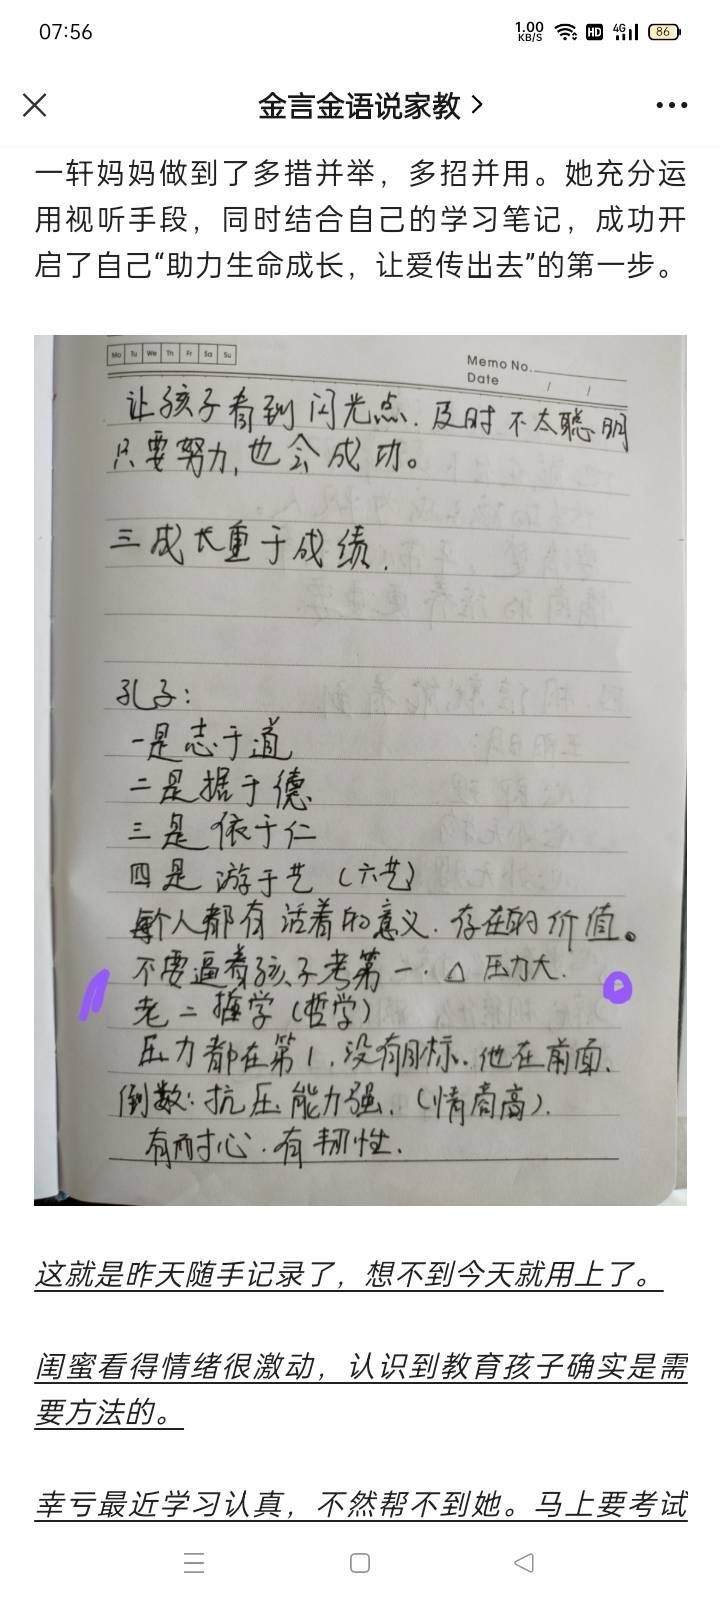 07:56
1.00 KB/S HD 4G 86
金言金语说家教
一轩妈妈做到了多措并举，多招并用。她充分运
用视听手段，同时结合自己的学习笔记，成功开
启了自己“助力生命成长，让爱传出去”的第一步。
Mo Tu We Th Fr Sa Su
Memo No.
Date / /
让孩子看到闪光点.及时不太聪明
只要努力,也会成功。
三成长重于成绩.
孔子:
一是志于道
二是据于德
三是依于仁
四是游于艺(六艺)
每个人都有活着的意义.存在的价值。
不要逼着孩子考第一.△压力大.
老二哲学(哲学)
压力都在第1.没有目标.他在前面.
倒数:抗压能力强.(情商高).
有耐心.有韧性.
这就是昨天随手记录了，想不到今天就用上了。
闺蜜看得情绪很激动，认识到教育孩子确实是需
要方法的。
幸亏最近学习认真，不然帮不到她。马上要考试